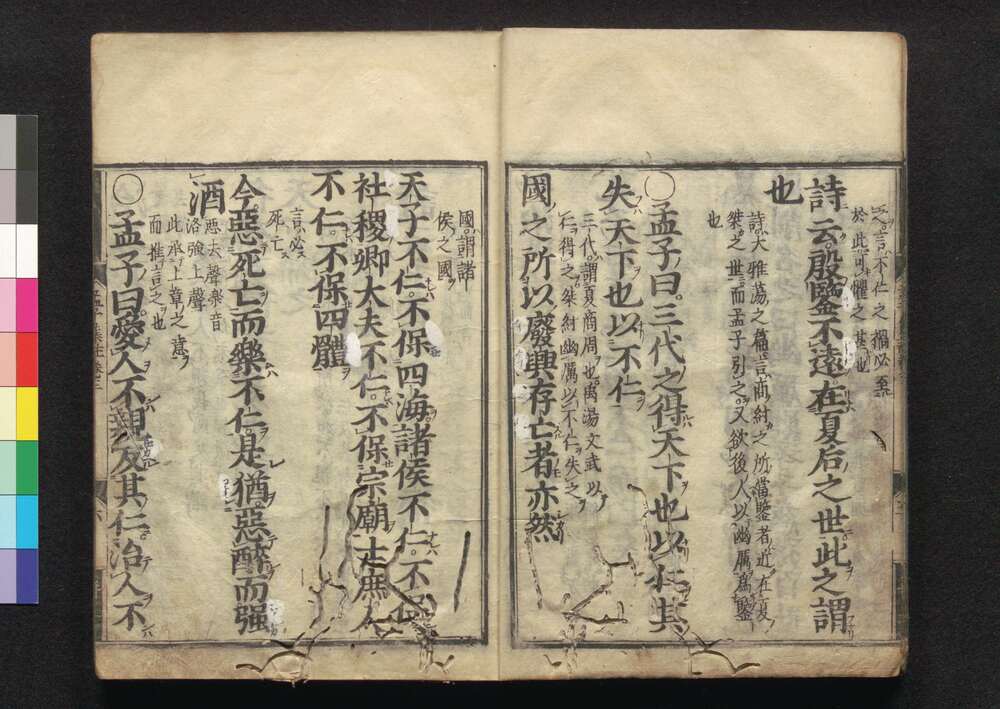 之言不仁之禍必至
於此可懼之甚也
詩云殷鑒不遠在夏后之世此之謂
也
詩大雅蕩之篇言商紂之所當鑒者近在夏
桀之世而孟子引之又欲後人以幽厲爲鑒
也
○孟子曰三代之得天下也以仁其
失天下也以不仁
三代謂夏商周也禹湯文武以
仁得之桀紂幽厲以不仁失之
國之所以廢興存亡者亦然
國謂諸
侯之國
天子不仁不保四海諸侯不仁不保
社稷卿大夫不仁不保宗廟士庶人
不仁不保四體
言必
死亡
今惡死亡而樂不仁是猶惡醉而强
酒
惡去聲樂音
洛强上聲
此承上章之意
而推言之也
○孟子曰愛人不親反其仁治人不